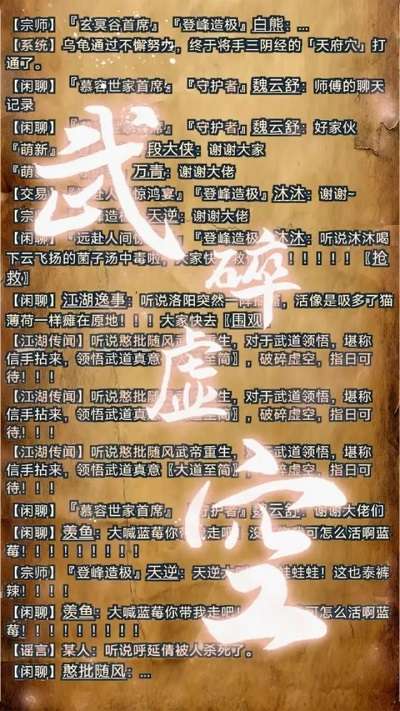 【宗师】『玄冥谷首席』『登峰造极』白熊：...
【系统】乌龟通过不懈努力，终于将手三阴经的「天府穴」打
通了。
【闲聊】『慕容世家首席』『守护者』魏云舒：师傅的聊天
记录
【闲聊】『慕容世家首席』『守护者』魏云舒：好家伙
『萌新』段大侠：谢谢大家
『萌 万青：谢谢大佬
【交易】 赴人 惊鸿宴』『登峰造极』沐沐：谢谢~
【宗 峰造极』天逆：谢谢大佬
【闲 『远赴人间惊 『登峰造极』沐沐：听说沐沐喝
下云飞扬的菌子汤中毒啦，大家快 ！！！！！〖抢
救〗
【闲聊】江湖逸事：听说洛阳突然一阵 ，活像是吸多了猫
薄荷一样瘫在原地！！！大家快去〖围观〗
【江湖传闻】听说憨批随风武帝重生，对于武道领悟，堪称
信手拈来，领悟武道真意〖大道至简〗，破碎虚空，指日可
待！！！
【江湖传闻】听说憨批随风武帝重生，对于武道领悟，堪称
信手拈来，领悟武道真意〖大道至简〗，破碎虚空，指日可
待！！！
【江湖传闻】听说憨批随风武帝重生，对于武道领悟，堪称
信手拈来，领悟武道真意〖大道至简〗，破碎虚空，指日可
待！！！
【闲聊】『慕容世家首席』『守护者』魏云舒：谢谢大佬们
【闲聊】羡鱼：大喊蓝莓你带我走吧！没 我可怎么活啊蓝
莓！！！！！！！！！
【宗师】『登峰造极』天逆：天逆大 蛙蛙蛙！这也泰裤
辣！！！
【闲聊】羡鱼：大喊蓝莓你带我走吧！ 可怎么活啊蓝
莓！！！！！！！！！
【谣言】某人：听说呼延倩被人杀死了。
【闲聊】憨批随风：...
武
碎
虚
空